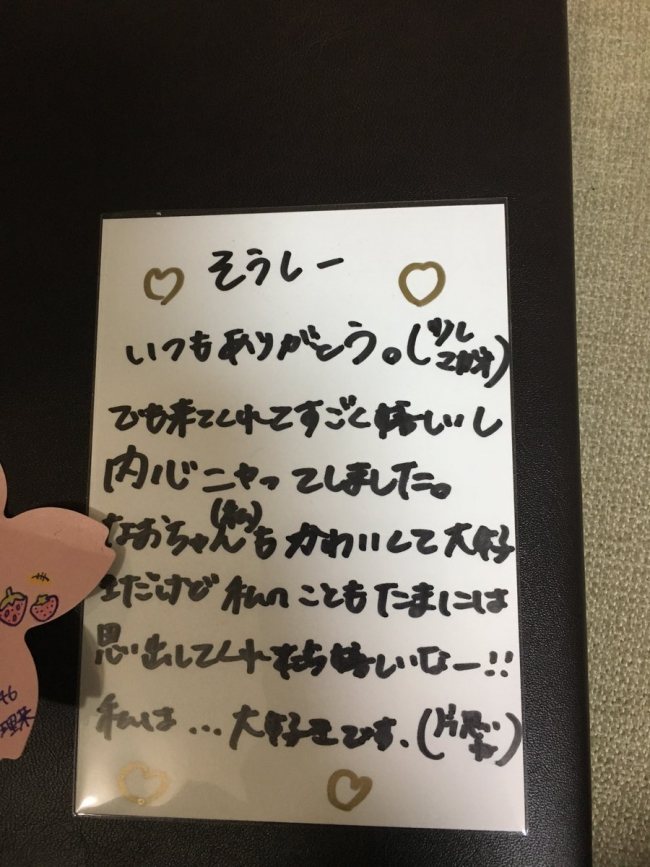 そうしー
いつもありがとう。(少し
でも来てくれてすごく嬉しいし
内心ニヤってしました。
なおちゃん(私)もかわいくて大好
きだけど私のこともたまには
思い出してくれたら嬉しいなー!!
私は…大好きです.(片思い
46
理菜